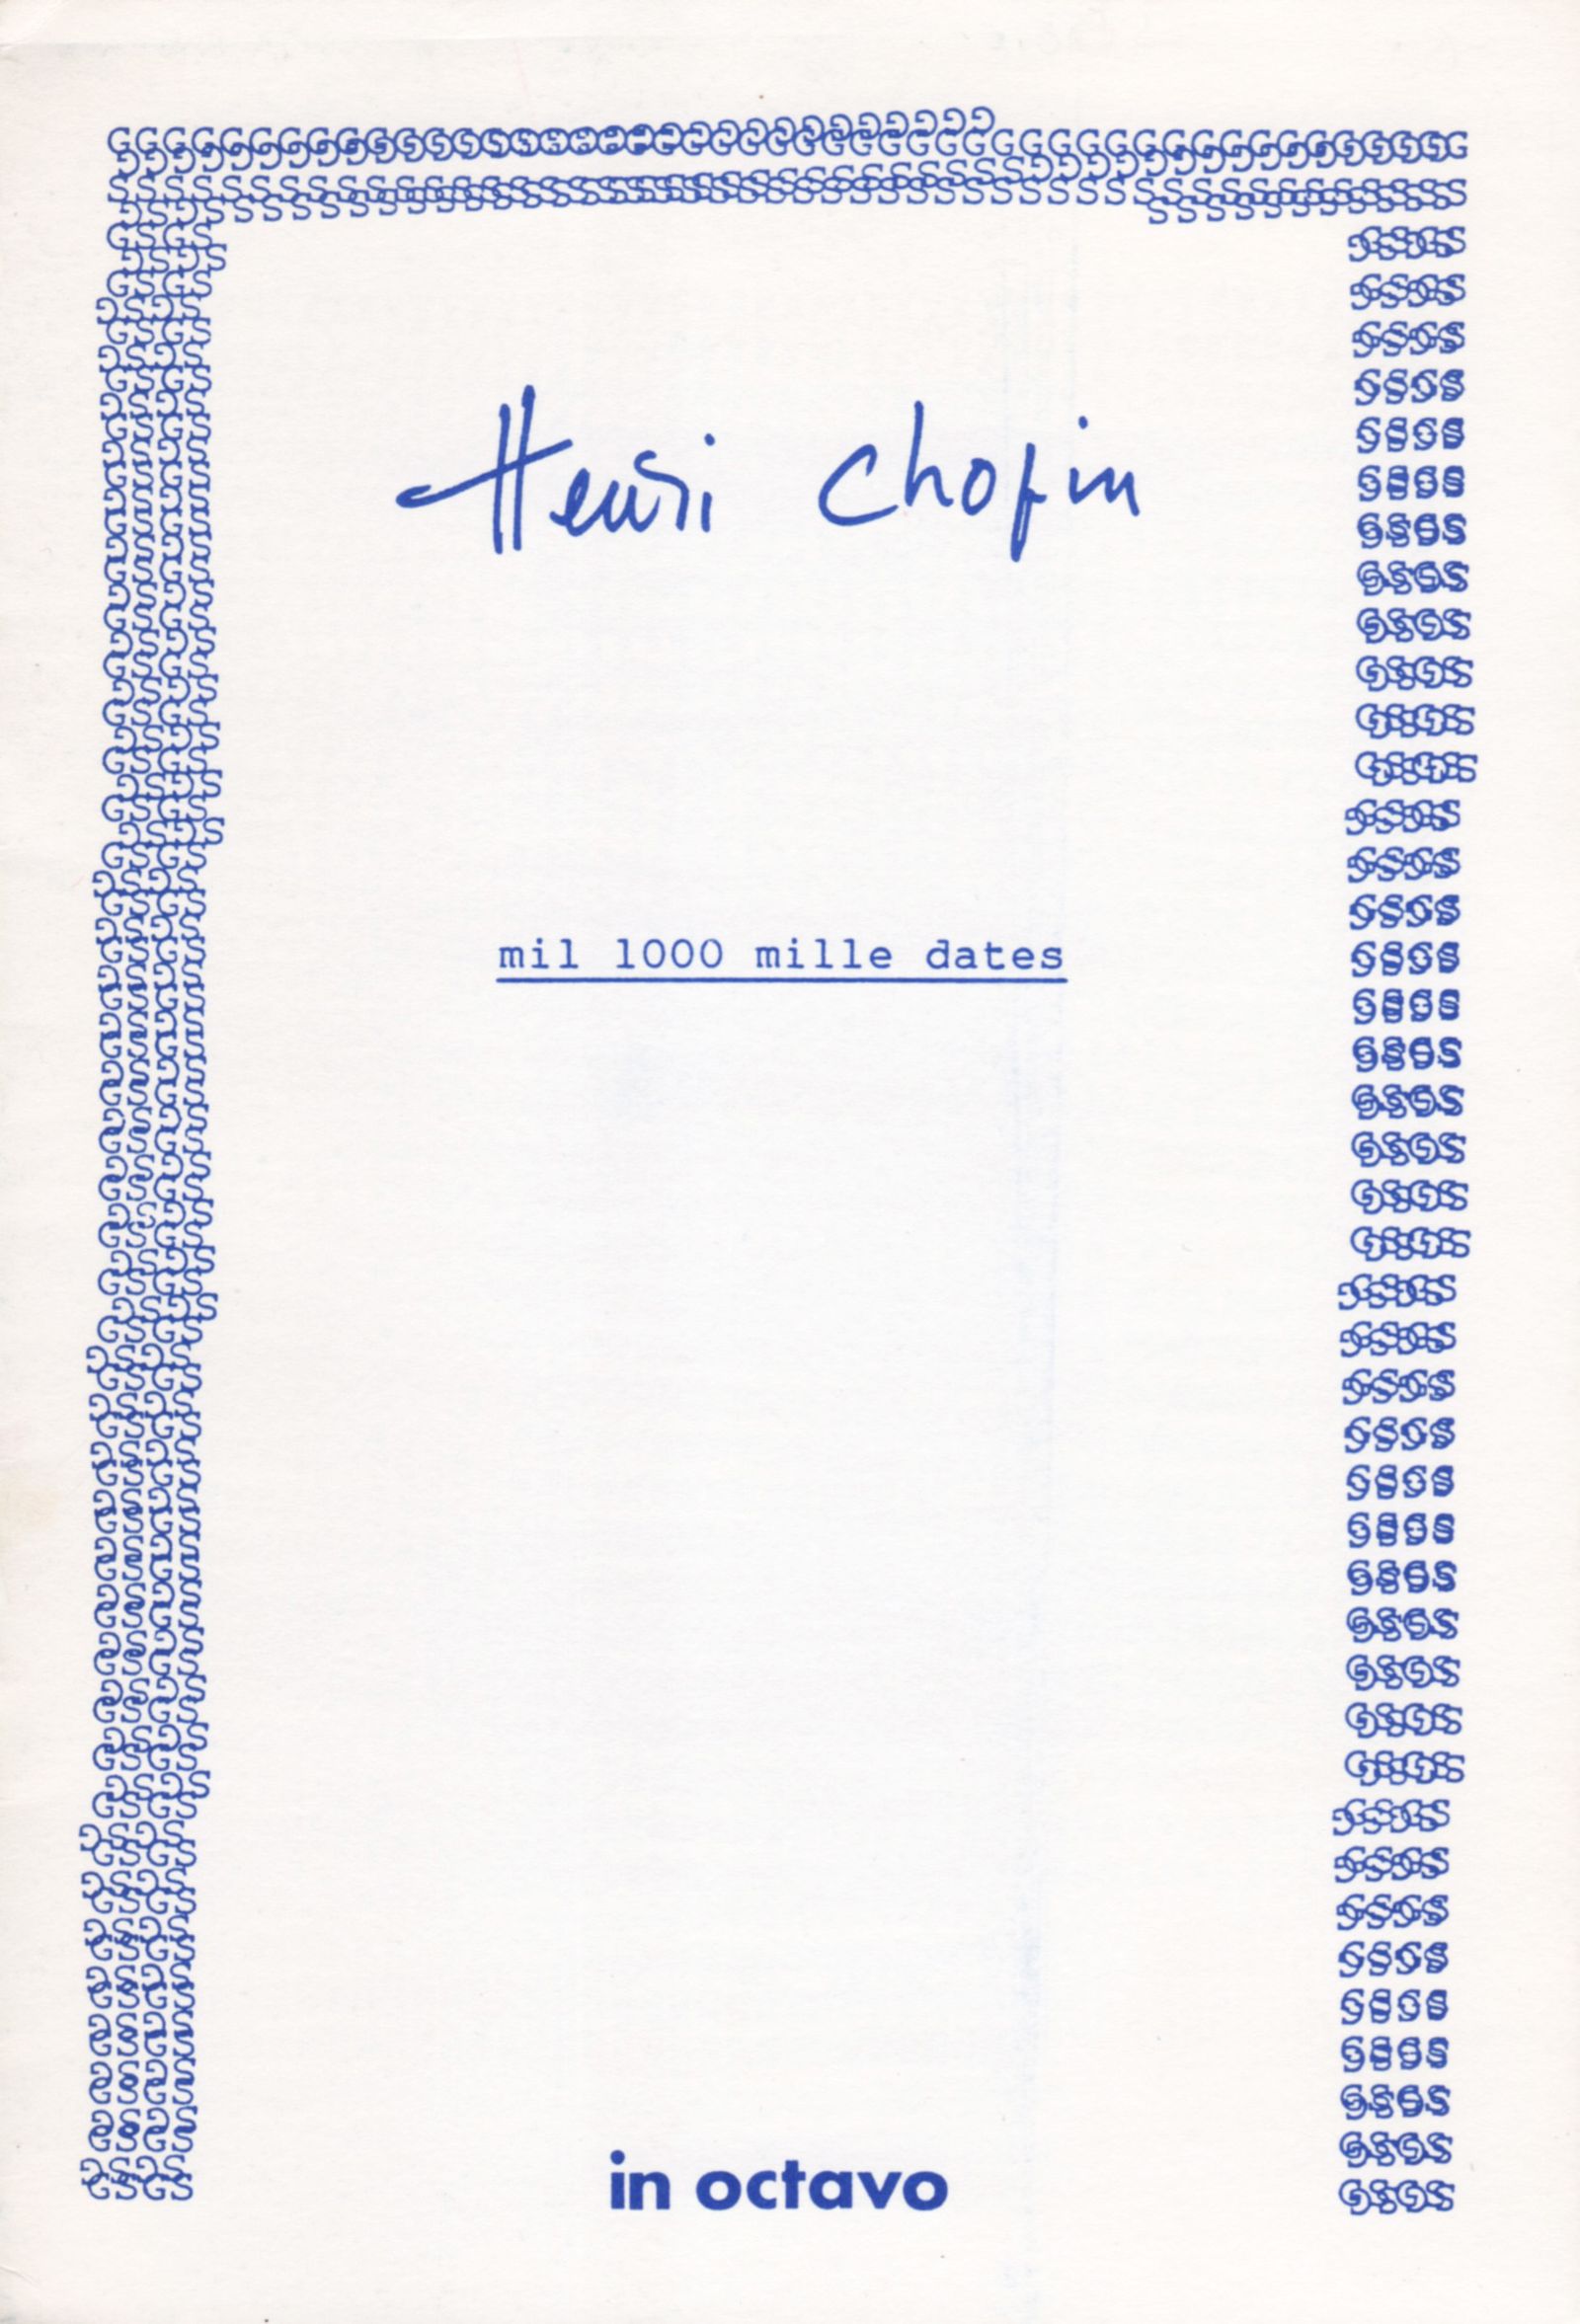 Henri Chopin
mil 1000 mille dates
in octavo